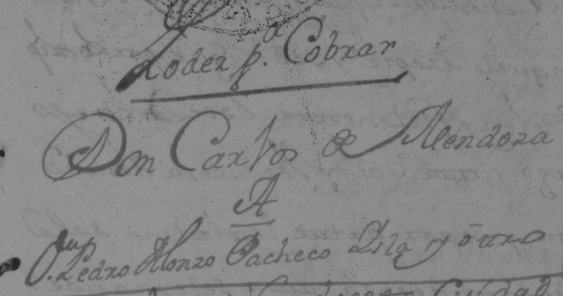 Poder p.a Cobrar
Don Carlos de Mendoza
A
D.n Pedro Alonzo Pacheco Isla y otro
Ciudad